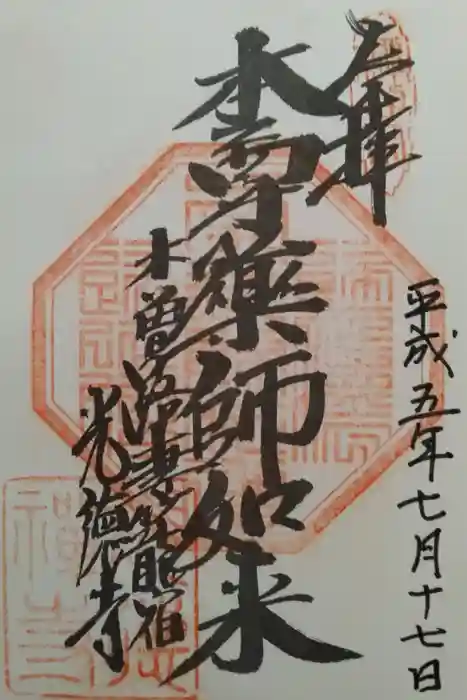 奉拝
平成五年七月十七日
本尊薬師如来
木曽路妻籠宿
光徳寺